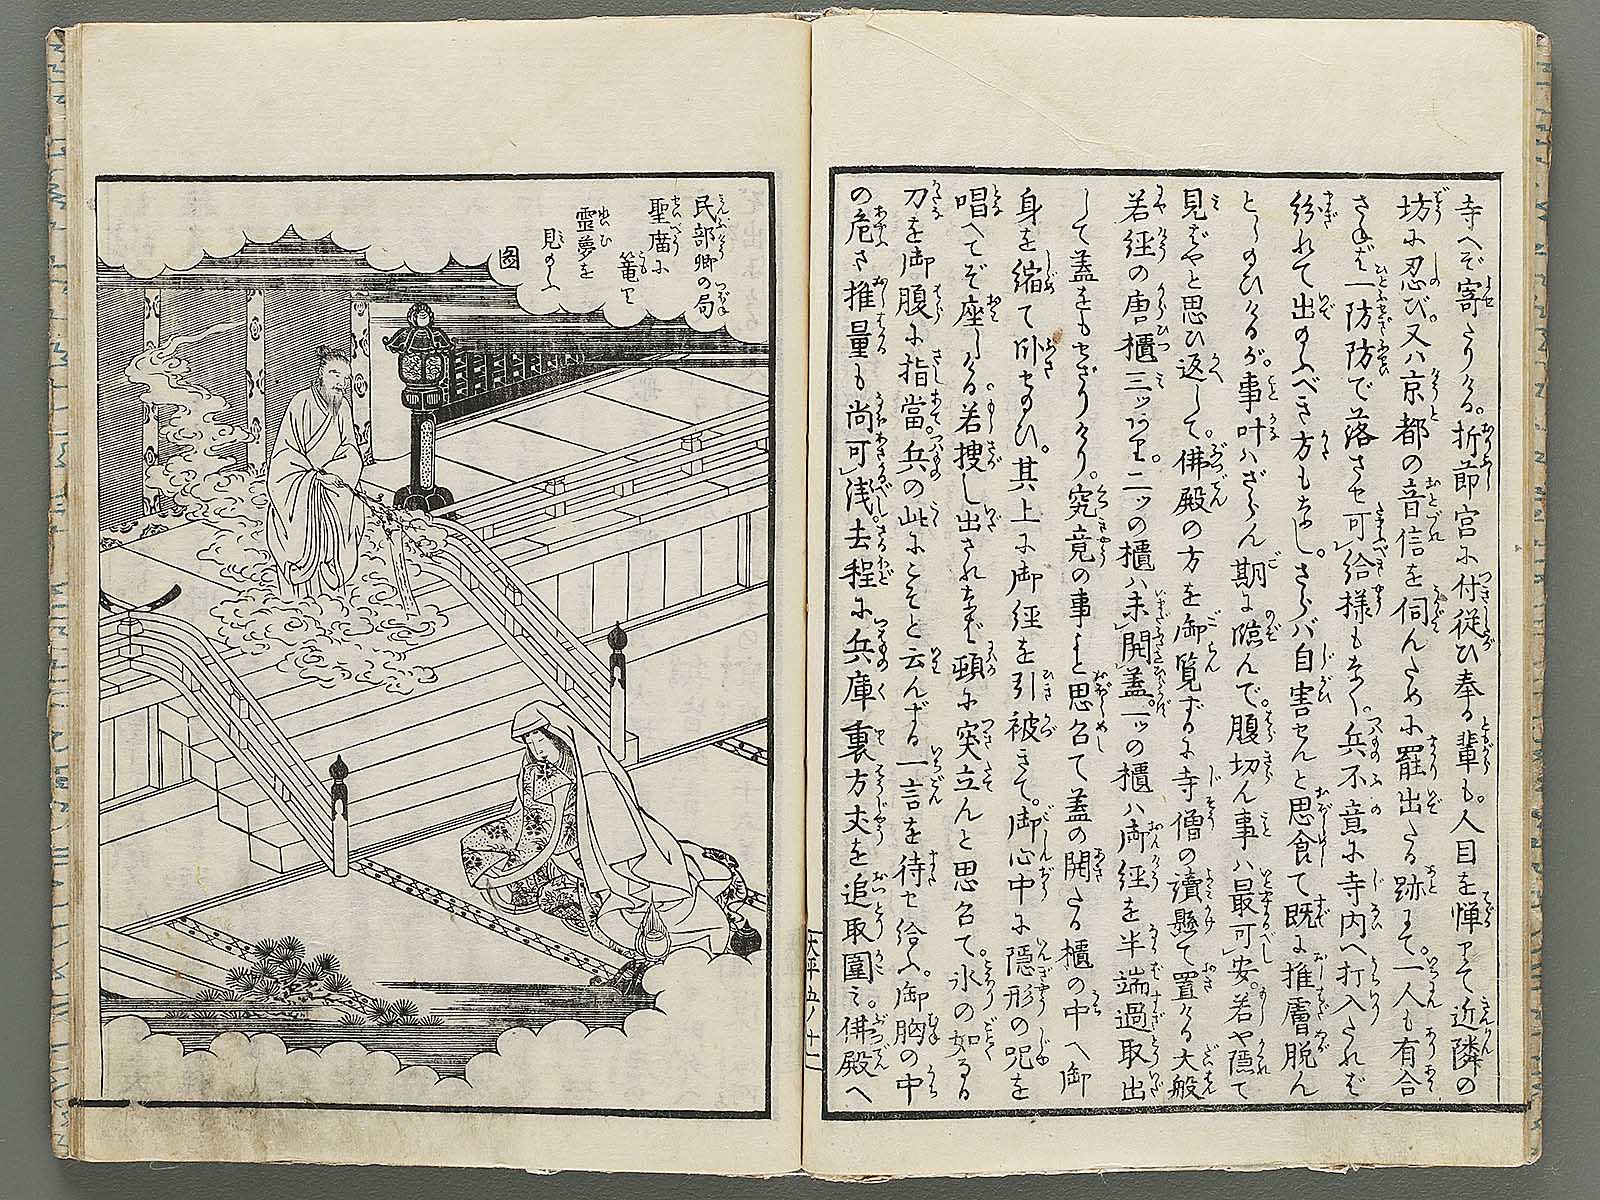 寺へぞ寄たりける。折節宮に付従ひ奉る輩も。人目を憚りて近隣の
坊に忍び。又ハ京都の音信を伺んために罷出たる跡にて。一人も有合
さねバ一防防で落させ可給様もなく。兵不意に寺内へ打入たれバ
紛れて出のふべき方もなし。さらバ自害せんと思食て既に推膚脱
とらのひけるが。事叶ハざらん期に臨んで。腹切ん事ハ最可安。若や隠て
見ばやと思ひ返して。佛殿の方を御覧ずるに寺僧の讀懸て置ける大般
若経の唐櫃三ッあり。二ッの櫃ハ未開蓋。一ッの櫃ハ御経を半端過取出
して蓋をもせざりけり。究竟の事よと思召て蓋の開たる櫃の中へ御
身を縮て臥せのひ。其上に御経を引被きて。御心中に隠形の呪を
唱へてぞ座しける。若捜し出されなば頓に突立んと思召て。氷の如なる
刀を御腹に指當。兵の此にこそと云んずる一言を待せ給ふ。御胸の中
の危さ推量も尚可浅。去程に兵庫裏方丈を追取圍ミ。佛殿へ
民部卿の局
聖廟に
篭り
霊夢を
見のふ
図
太平五ノ十二